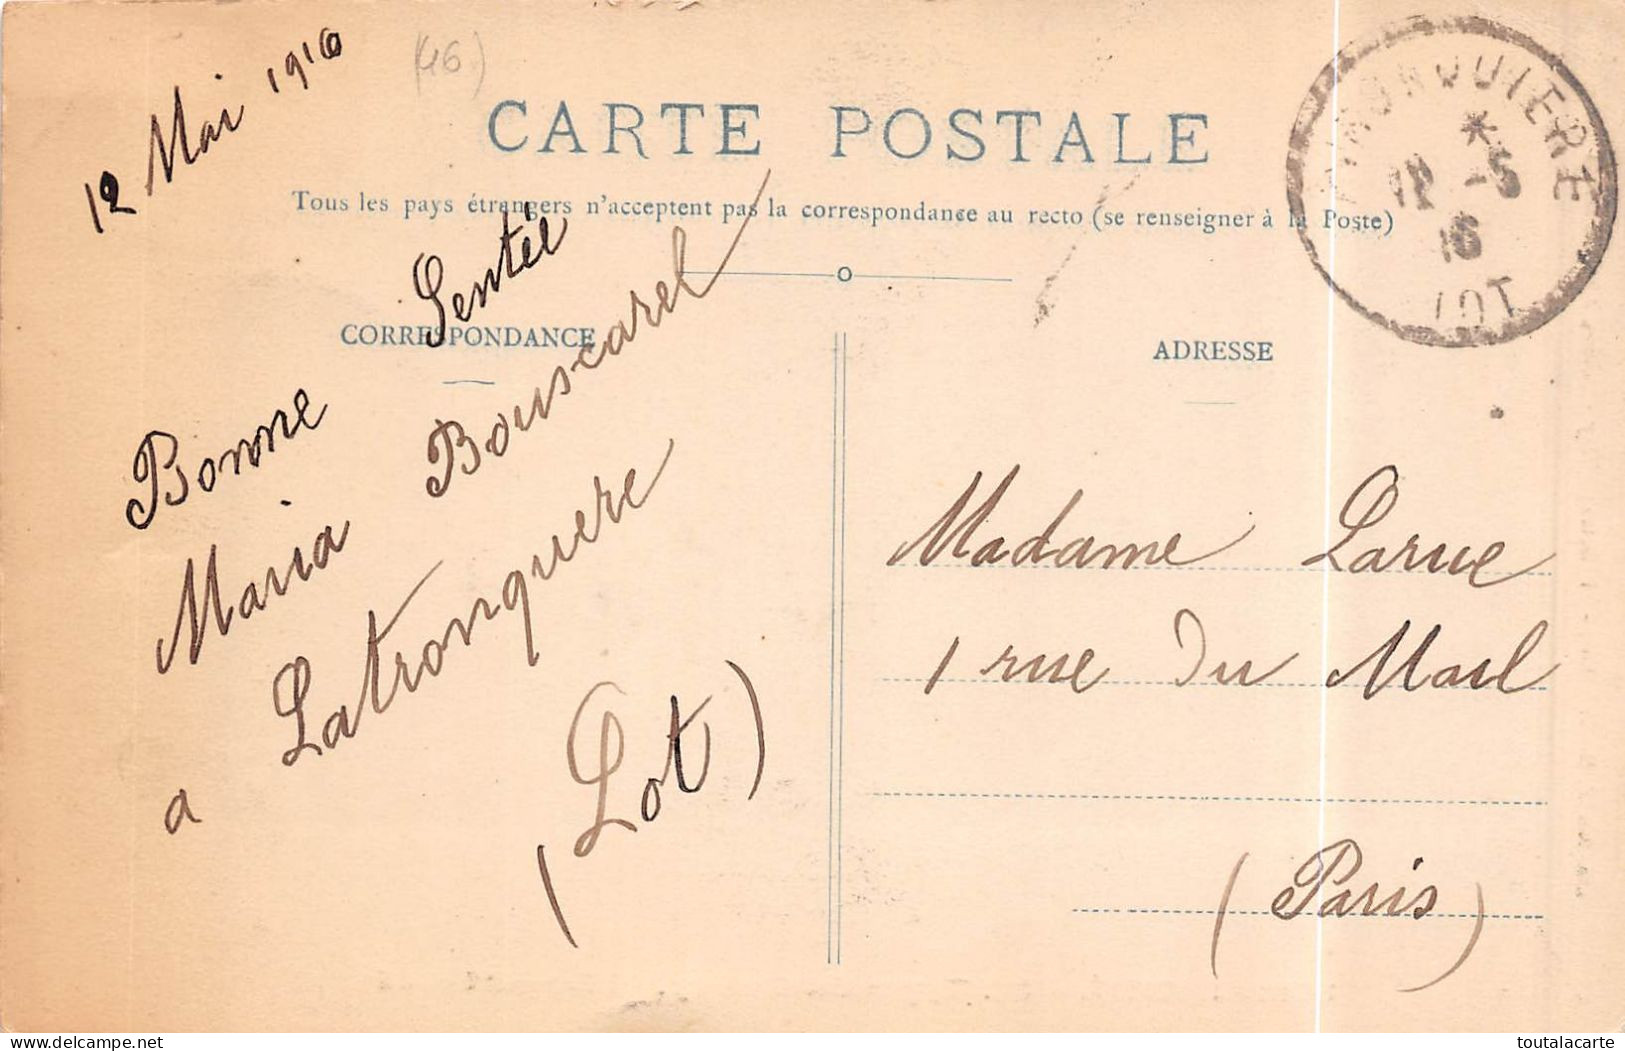 12 Mai 1916
(46)
CARTE POSTALE
Tous les pays étrangers n'acceptent pas la correspondance au recto (se renseigner à la Poste)
CORRESPONDANCE
Bonne Sentée
Maria Bouscarel
a Latronquere
(Lot)
ADRESSE
Madame Larue
1 rue Du Mail
(Paris)
12 -5
16
LOT
delcampe.net
toutalacarte